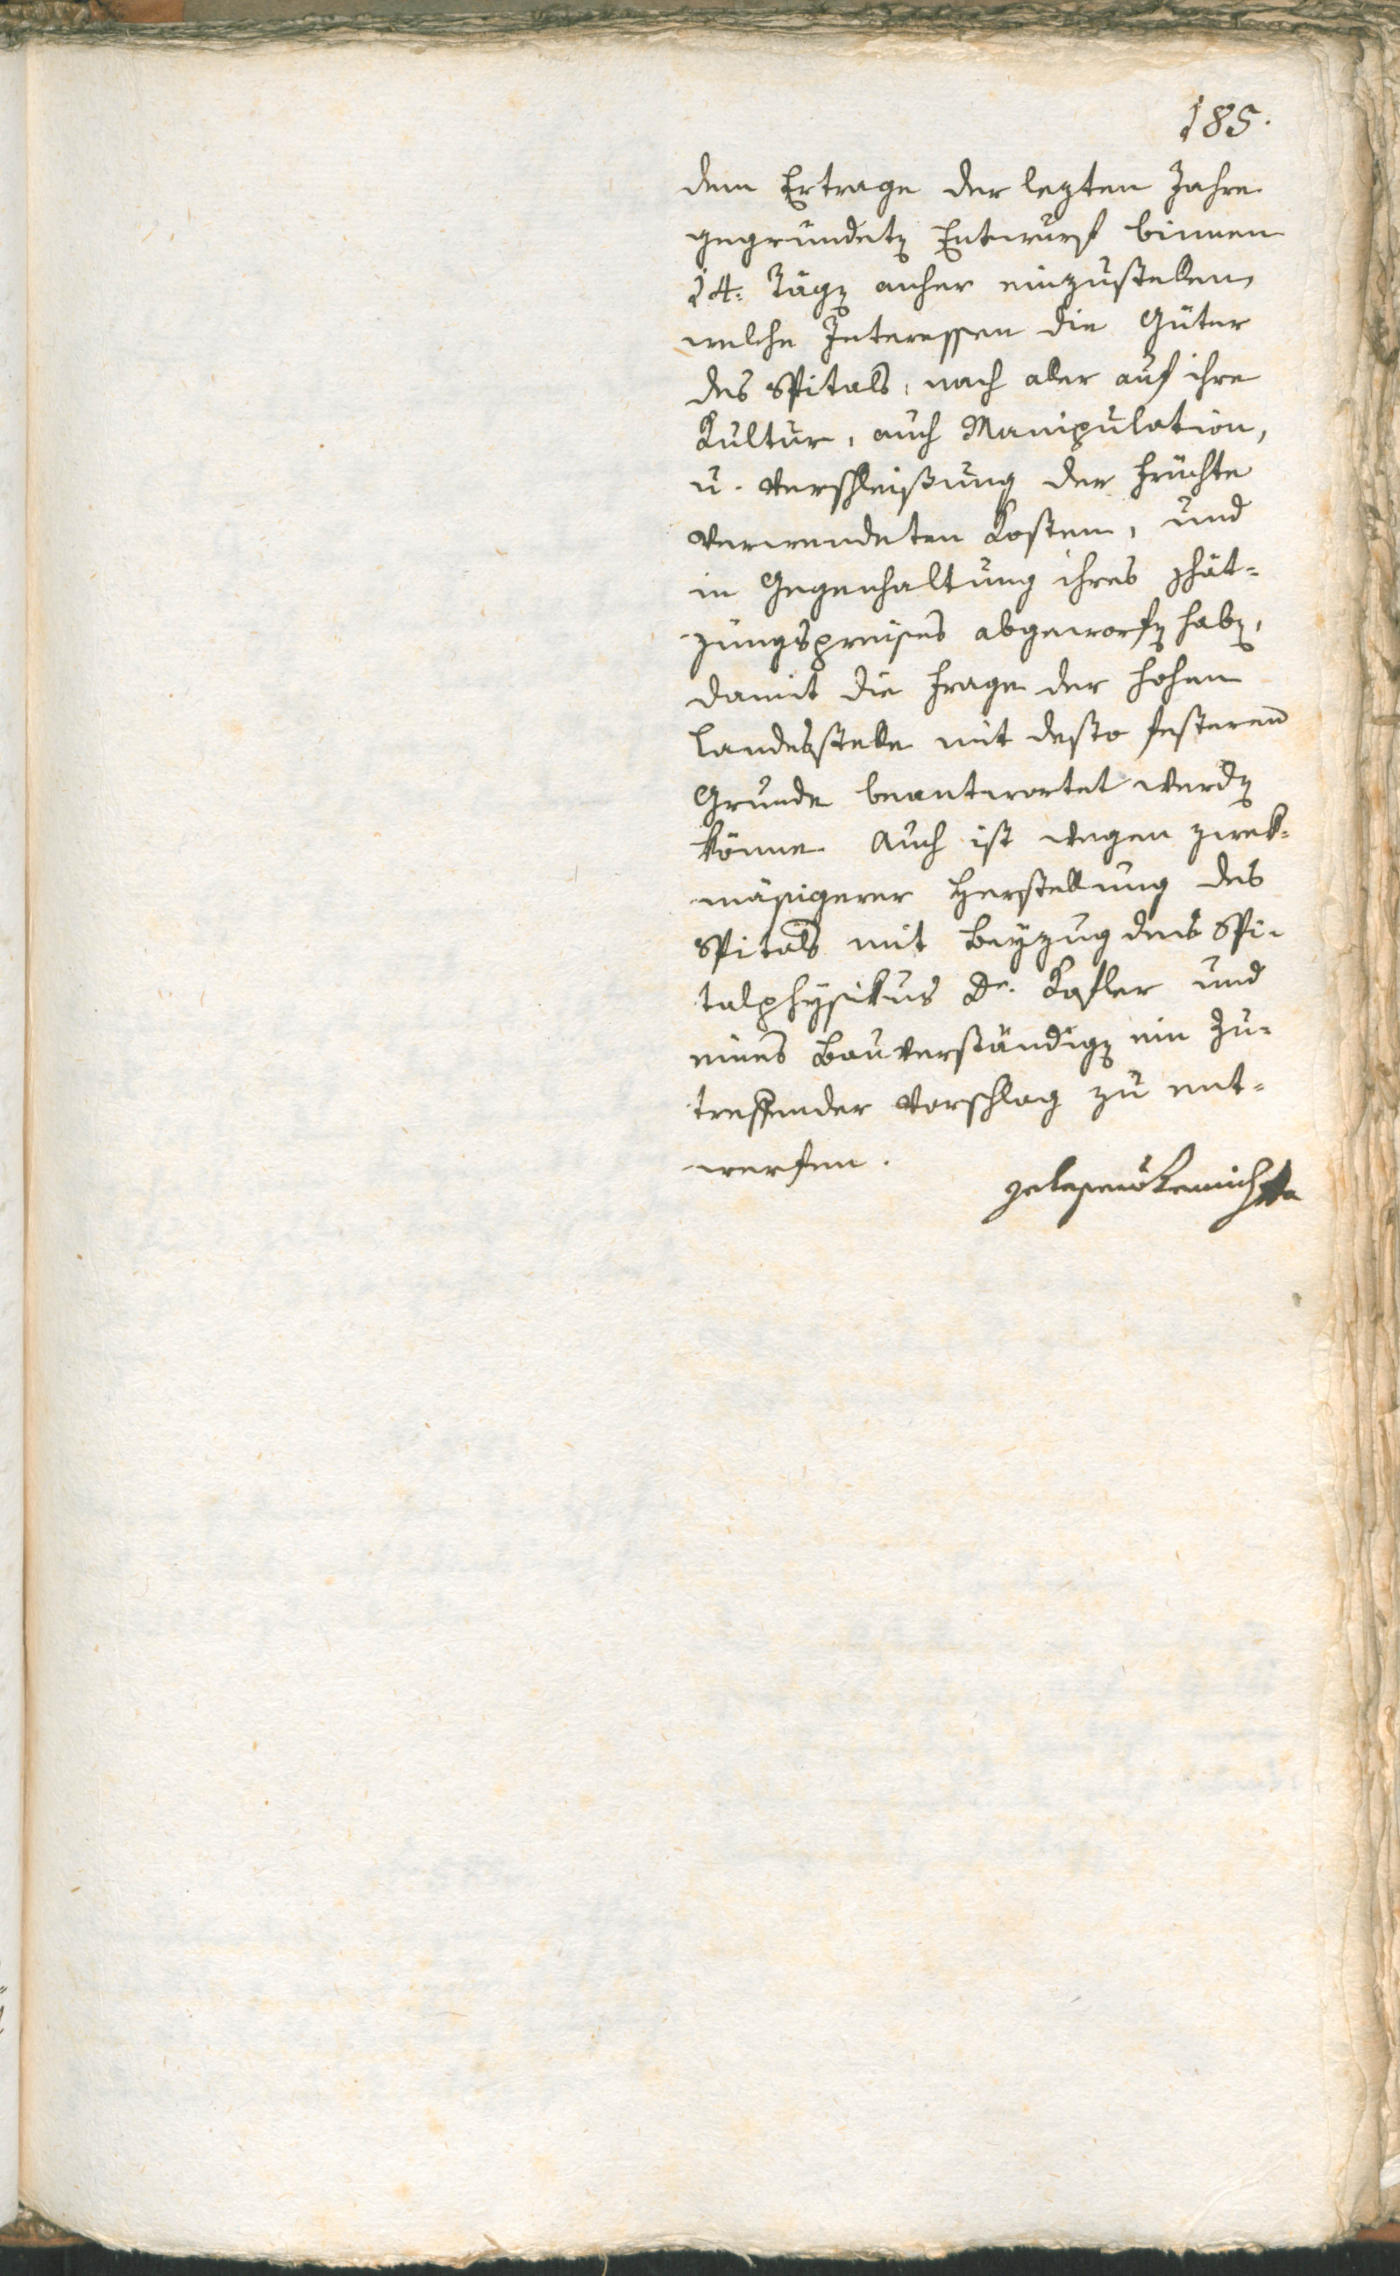 185.
dem Ertrage der lezten Jahre
gegründetn Entwurf binnen
14: Tägn anher einzustellen,
welche Interessen die Güter
des Spitals, nach aller auf ihre
Kultur, auch Manipulation,
u. Verschleißung der Früchte
verwendeten Kosten, und
in Gegenhaltung ihres schät-
zungspreises abgeworfn habn,
damit die Frage der hohen
Landesstelle mit desto festeren
Grunde beantwortet werdn
könne. Auch ist wegen zwek-
mäsigerer Herstellung des
Spitals mit Beyzug des Spi-
talphysikus Dr. Kofler und
eines Bauverständign ein Zu-
treffender Vorschlag zu ent-
werfen.